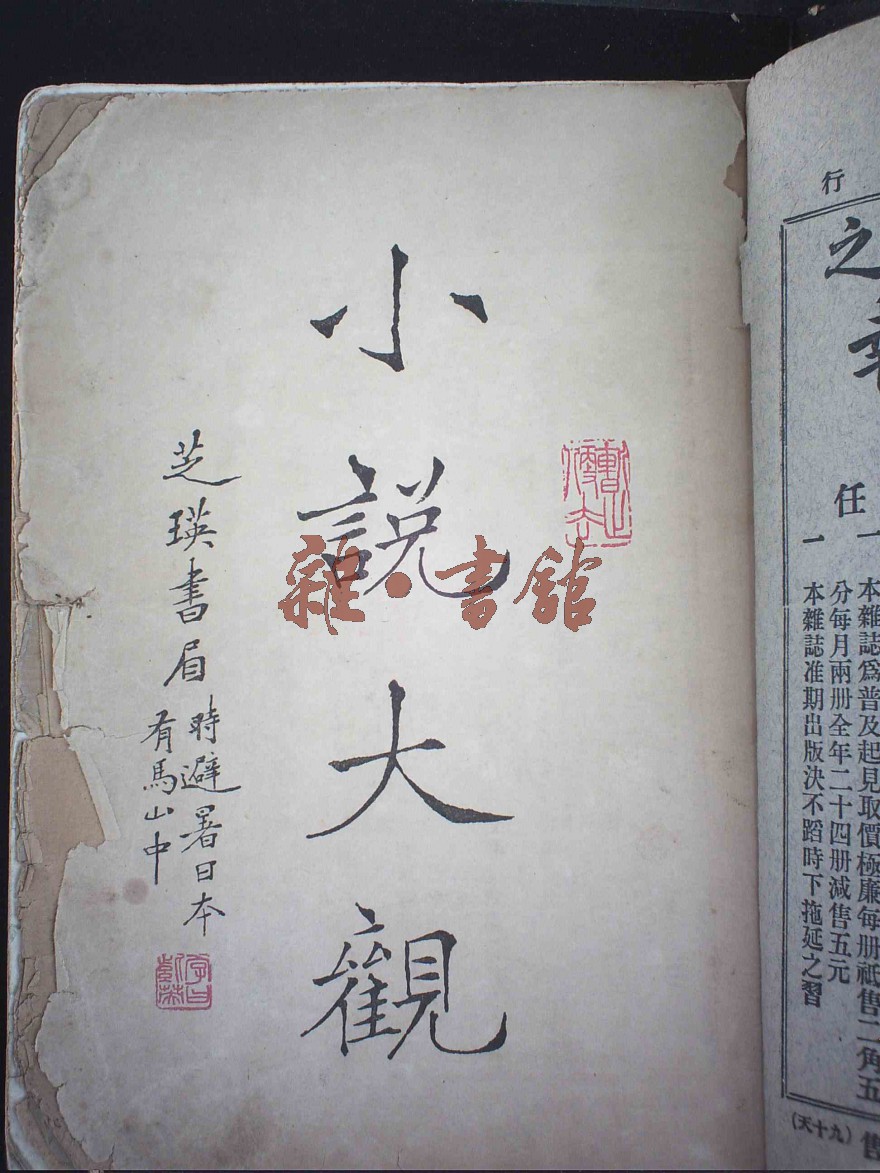 小說大觀
芝瑛書眉
時避暑日本
有馬山中
雜·書館
行
之
任
一 本雜誌爲普及起見取價極廉每册祇售二角五
分每月兩册全年二十四册減售五元
一 本雜誌准期出版決不蹈時下拖延之習
售
(天十九)